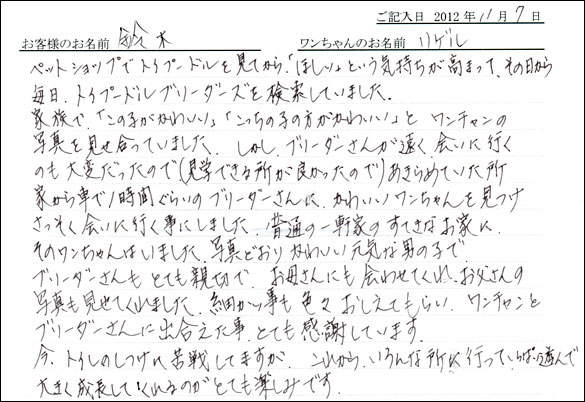 ご記入日 2012年11月7日
お客様のお名前 鈴木 ワンちゃんのお名前 リゲル
ペットショップでトイプードルを見てから、「ほしい」という気持ちが高まって、その日から
毎日、トイプードルブリーダーズを検索していました。
家族で、「この子がかわいい」「こっちの子の方がかわいい」とワンチャンの
写真を見せ合っていました。しかし、ブリーダーさんが遠く、会いに行く
のも大変だったので(見学できる所が良かったので)あきらめていた所
家から車で1時間ぐらいのブリーダーさんに、かわいいワンちゃんを見つけ
さっそく会いに行く事にしました。普通の一軒家のすてきなお家に
そのワンちゃんはいました。写真どおりかわいい元気な男の子で
ブリーダーさんもとても親切で、お母さんにも会わせてくれ、お父さんの
写真も見せてくれました。細かい事も色々おしえてもらい、ワンチャンと
ブリーダーさんに出合えた事、とても感謝しています。
今、トイレのしつけに苦戦してますが、これから、いろんな所に行っていっぱい遊んで
大きく成長してくれるのがとても楽しみです。